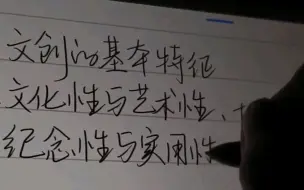 文创的基本特征
文化性与艺术性、
纪念性与实用性